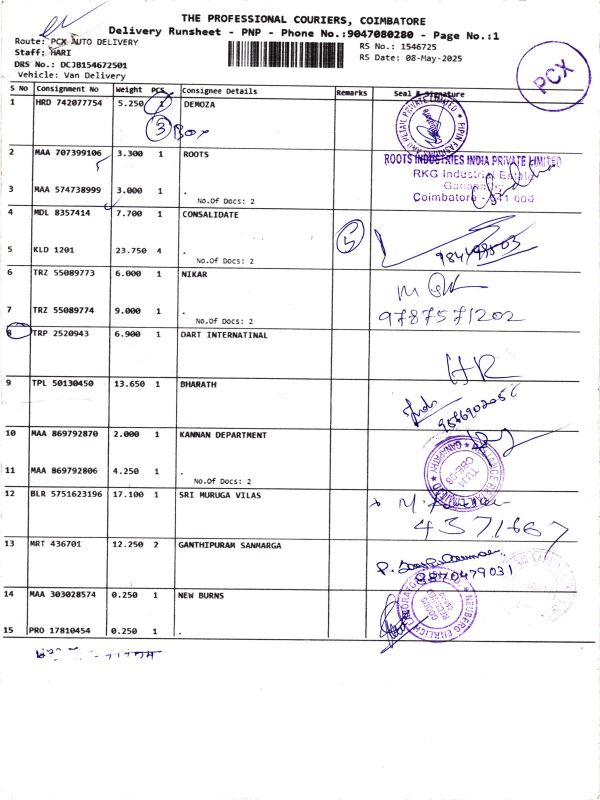 THE PROFESSIONAL COURIERS, COIMBATORE
Delivery Runsheet - PNP - Phone No.:9047080280 - Page No.:1
Route: PCX AUTO DELIVERY
Staff: HARI
DRS No.: DCJB154672501
Vehicle: Van Delivery
RS No.: 1546725
RS Date: 08-May-2025
PCX
S No Consignment No Weight PCS Consignee Details Remarks Seal & Signature
1 HRD 742077754 5.250 1 DEMOZA
3 Box
2 MAA 707399106 3.300 1 ROOTS
ROOTS INDUSTRIES INDIA PRIVATE LIMITED
RKG Industrial Estate
Ganapathy
Coimbatore - 641 006
3 MAA 574738999 3.000 1 .
No.Of Docs: 2
4 MDL 8357414 7.700 1 CONSALIDATE
5
5 KLD 1201 23.750 4 .
No.Of Docs: 2
6 TRZ 55089773 6.000 1 NIKAR
7 TRZ 55089774 9.000 1 .
No.Of Docs: 2
9787571202
8 TRP 2520943 6.900 1 DART INTERNATINAL
9 TPL 50130450 13.650 1 BHARATH
10 MAA 869792870 2.000 1 KANNAN DEPARTMENT
11 MAA 869792806 4.250 1 .
No.Of Docs: 2
12 BLR 5751623196 17.100 1 SRI MURUGA VILAS
4371667
13 MRT 436701 12.250 2 GANTHIPURAM SANMARGA
8870479031
14 MAA 303028574 0.250 1 NEW BURNS
15 PRO 17810454 0.250 1 .